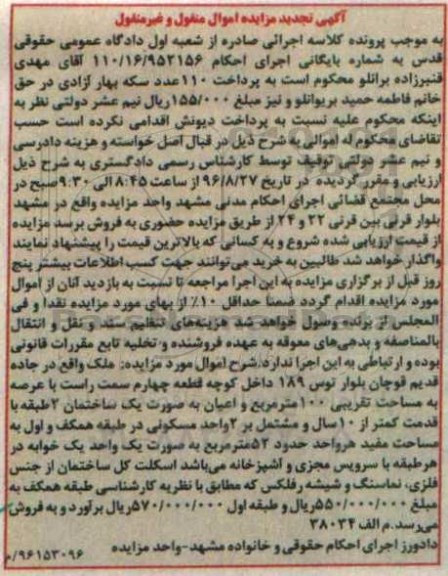 آگهی تجدید مزایده اموال منقول و غیرمنقول
به موجب پرونده کلاسه اجرائی صادره از شعبه اول دادگاه عمومی حقوقی
قدس به شماره بایگانی اجرای احکام ۱۱۰/۱۶/۹۵۲۱۵۶ آقای مهدی
قنبرزاده برانلو محکوم است به پرداخت ۱۱۰عدد سکه بهار آزادی در حق
خانم فاطمه حمید بریوانلو و نیز مبلغ ۱۵۵/۰۰۰ریال نیم عشر دولتی نظر به
اینکه محکوم علیه نسبت به پرداخت دیونش اقدامی نکرده است حسب
تقاضای محکوم له اموالی به شرح ذیل در قبال اصل خواسته و هزینه دادرسی
و نیم عشر دولتی توقیف توسط کارشناس رسمی دادگستری به شرح ذیل
ارزیابی و مقرر گردیده در تاریخ ۹۶/۸/۲۷ از ساعت ۸:۴۵ الی ۹:۳۰صبح در
محل مجتمع قضائی اجرای احکام مدنی مشهد واحد مزایده واقع در مشهد
بلوار قرنی بین قرنی ۲۲ و ۲۴ از طریق مزایده حضوری به فروش برسد مزایده
از قیمت ارزیابی شده شروع و به کسانی که بالاترین قیمت را پیشنهاد نمایند
واگذار خواهد شد طالبین به خرید می توانند جهت کسب اطلاعات بیشتر پنج
روز قبل از برگزاری مزایده به این اجرا مراجعه تا نسبت به بازدید آنان از اموال
مورد مزایده اقدام گردد ضمنا حداقل ۱۰٪ از بهای مورد مزایده نقدا و فی
المجلس از برنده وصول خواهد شد هزینه‌های تنظیم سند و نقل و انتقال
بالمناصفه و بدهی‌های معوقه به عهده فروشنده و تخلیه تابع مقررات قانونی
بوده و ارتباطی به این اجرا ندارد.شرح اموال مورد مزایده: ملک واقع در جاده
قدیم قوچان بلوار توس ۱۸۹ داخل کوچه قطعه چهارم سمت راست با عرصه
به مساحت تقریبی ۱۰۰مترمربع و اعیان به صورت یک ساختمان ۲طبقه با
قدمت کمتر از ۱۰سال و مشتمل بر ۲واحد مسکونی در طبقه همکف و اول به
مساحت مفید هرواحد حدود ۵۲مترمربع به صورت یک واحد یک خوابه در
هرطبقه با سرویس مجزی و آشپزخانه می‌باشد اسکلت کل ساختمان از جنس
فلزی، نماسنگ و شیشه رفلکس که مطابق با نظریه کارشناسی طبقه همکف به
مبلغ ۵۵۰/۰۰۰/۰۰۰ریال و طبقه اول ۵۷۰/۰۰۰/۰۰۰ریال برآورد و به فروش
می‌رسد.م الف ۳۸۰۳۴
دادورز اجرای احکام حقوقی و خانواده مشهد-واحد مزایده /۹۶۱۵۳۰۹۶